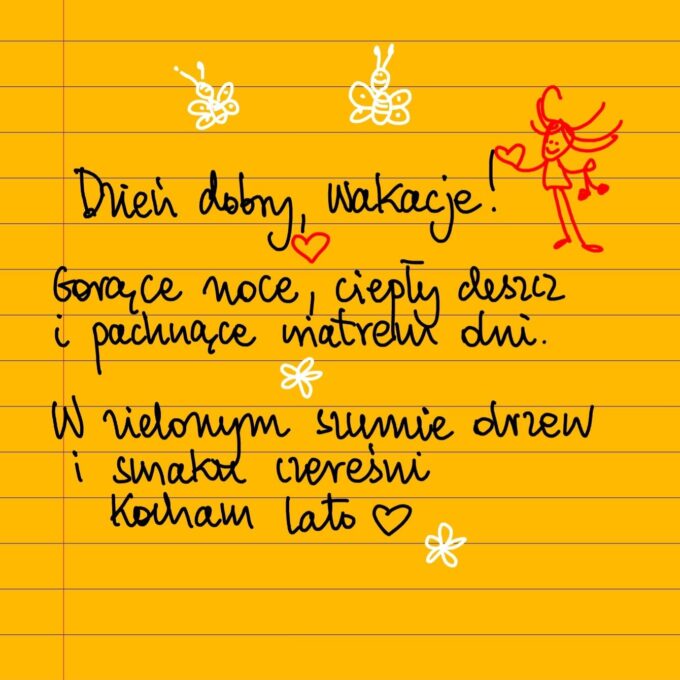 Dzień dobry, wakacje!
Gorące noce, ciepły deszcz
i pachnące wiatrem dni.
W zielonym szumie drzew
i smaku czereśni
kocham lato